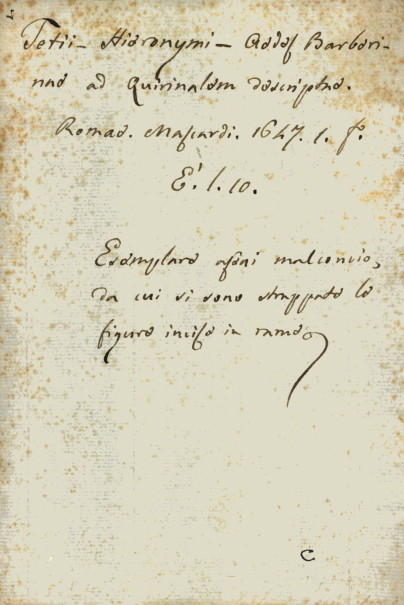 Tetii - Hieronymi - Aedes Barberi-
nae ad Quirinalem descriptae.
Romae. Mascardi. 1647. 1. fo.
E. l. 10.
Esemplare assai malconcio,
da cui si sono strappate le
figure incise in rame
C